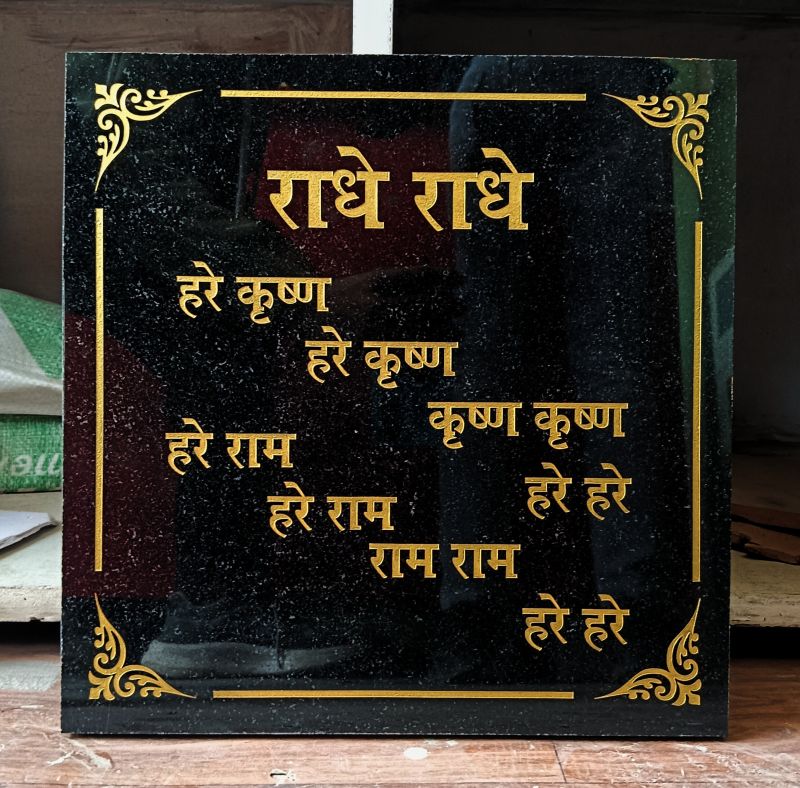 राधे राधे
हरे कृष्ण
हरे कृष्ण
कृष्ण कृष्ण
हरे हरे
हरे राम
हरे राम
राम राम
हरे हरे